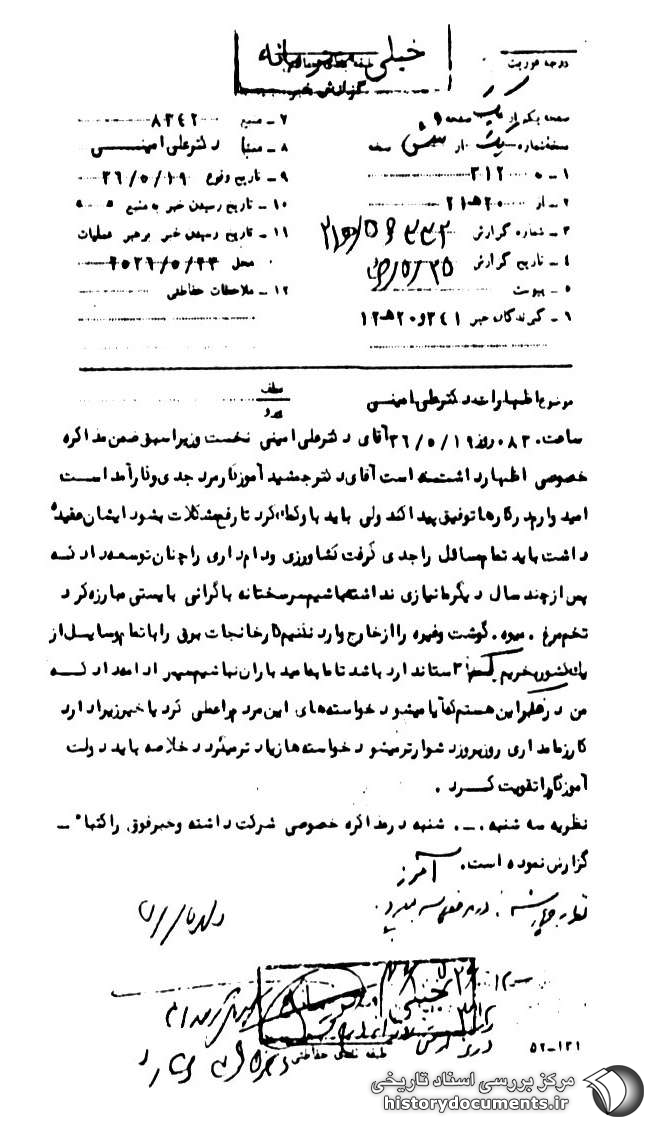 خیلی محرمانه
درجه فوریت
گزارش خبر
صفحه یک از یک صفحه
نسخه شماره یک از شش نسخه
۱ - به ۳۱۲
۲ - از ۲۰هـ۲۱
۳ - شماره گزارش
۴ - تاریخ گزارش
۵ - پیوست
۶ - گیرندگان خبر ۳۴۱و۲۰هـ۱۲
۷ - منبع ۸۳۴۲
۸ - منشأ دکتر علی امینی
۹ - تاریخ وقوع ۳۶/۵/۱۹
۱۰ - تاریخ رسیدن خبر به منبع
۱۱ - تاریخ رسیدن خبر برهبر عملیات
محل ۲۵۳۶/۵/۲۳
۱۲ - ملاحظات حفاظتی
موضوع اظهارات دکتر علی امینی
عطف
پیرو
ساعت ۰۸۳۰ روز ۳۶/۵/۱۹ آقای دکتر علی امینی نخست وزیر اسبق ضمن مذاکره
خصوصی اظهار داشته است آقای دکتر جمشید آموزگار مرد جدی و کارآمد است
امیدوارم در کارها توفیق پیدا کند ولی باید باو کمک کرد تا رفع مشکلات بشود ایشان عقیده
داشت باید تمام مسائل را جدی گرفت کشاورزی و دامداری را چنان توسعه داد که
پس از چند سال دیگر ما نیازی نداشته باشیم سرسختانه با گرانی بایستی مبارزه کرد
تخم مرغ . میوه . گوشت وغیره را از خارج وارد نکنیم کارخانجات برق را با تمام وسایل از
یک کشور بخریم که استاندارد باشد تا ما بامید باران نباشیم سپس ادامه داد که
من در فکر این هستم که آیا میشود خواسته های این مردم را عملی کرد یا خیر زیرا دارد
کار زمامداری روز بروز دشوارتر میشود خواسته ها زیادتر میگردد خلاصه باید دولت
آموزگار را تقویت کرد .
نظریه سه شنبه . - . شنبه در مذاکره خصوصی شرکت داشته و خبر فوق را کتباً -
گزارش نموده است.
خیلی محرمانه
طبقه بندی حفاظتی
۵۲-۱۲۱
مرکز بررسی اسناد تاریخی
historydocuments.ir